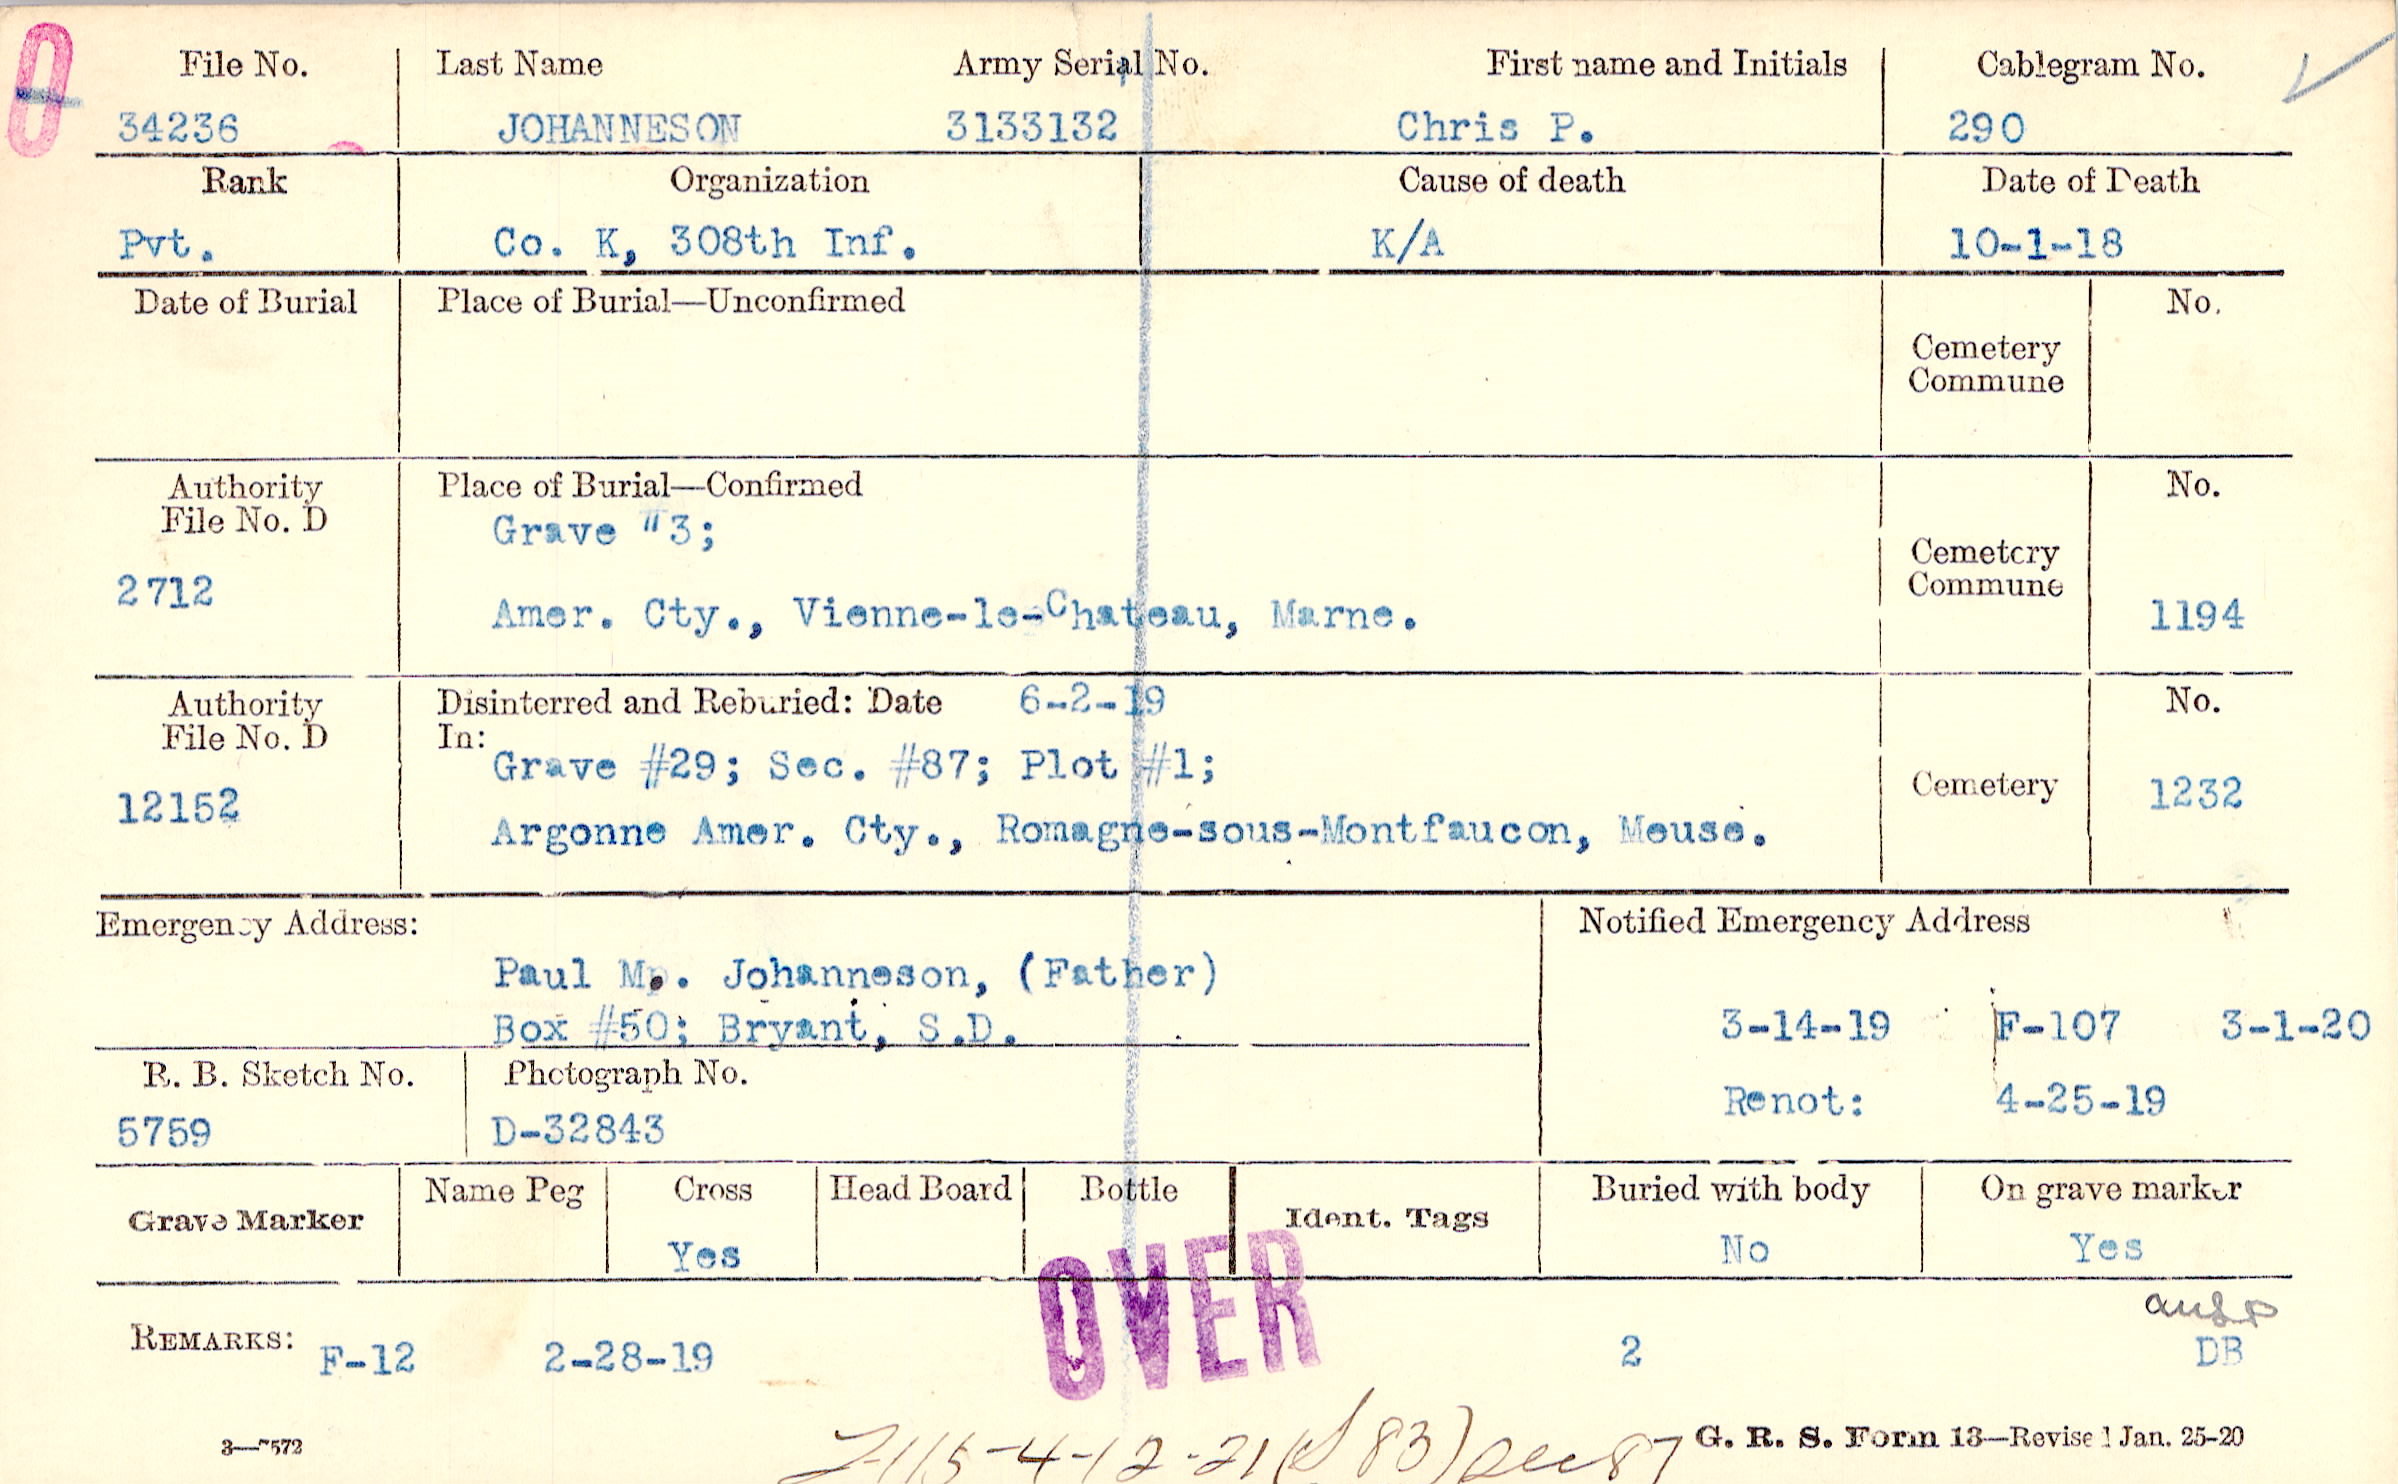 0
File No. Last Name Army Serial No. First name and Initials Cablegram No.
34236 JOHANNESON 3133132 Chris P. 290
Rank Organization Cause of death Date of Death
Pvt. Co. K, 308th Inf. K/A 10-1-18
Date of Burial Place of Burial—Unconfirmed No.
Cemetery
Commune
Authority Place of Burial—Confirmed No.
File No. D Grave "3;
Cemetery
2712 Commune
Amer. Cty., Vienne-le-Chateau, Marne. 1194
Authority Disinterred and Reburied: Date 6-2-19 No.
File No. D In:
Grave #29; Sec. #87; Plot #1;
12152 Cemetery 1232
Argonne Amer. Cty., Romagne-sous-Montfaucon, Meuse.
Emergency Address: Notified Emergency Address
Paul M. Johanneson, (Father)
Box #50; Bryant, S.D. 3-14-19 F-107 3-1-20
R. B. Sketch No. Photograph No. Renot: 4-25-19
5759 D-32843
Name Peg Cross Head Board Bottle Buried with body On grave marker
Grave Marker Ident. Tags
Yes No Yes
OVER
REMARKS: F-12 2-28-19 2 DB
3—7572 G. R. S. Form 13—Revised Jan. 25-20
4-12-21 83)